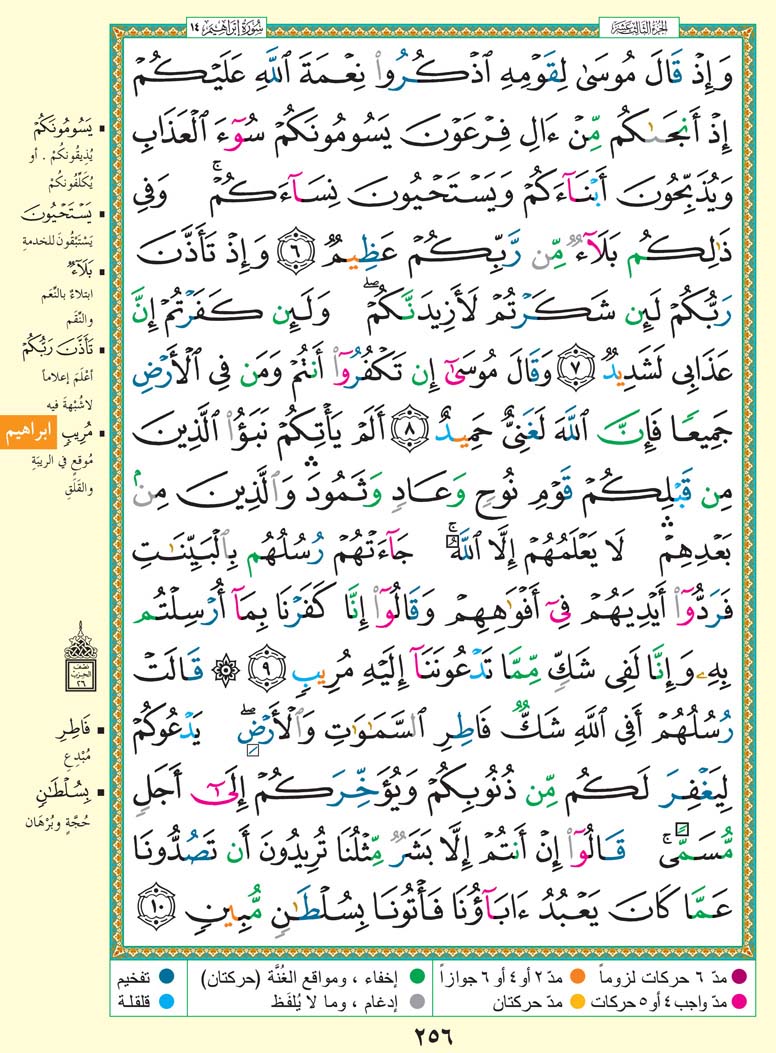 الجزء الثالث عشر
سورة إبراهيم ١٤
وَإِذْ قَالَ مُوسَىٰ لِقَوْمِهِ ٱذْكُرُوا۟ نِعْمَةَ ٱللَّهِ عَلَيْكُمْ
إِذْ أَنجَىٰكُم مِّنْ ءَالِ فِرْعَوْنَ يَسُومُونَكُمْ سُوٓءَ ٱلْعَذَابِ
وَيُذَبِّحُونَ أَبْنَآءَكُمْ وَيَسْتَحْيُونَ نِسَآءَكُمْ ۚ وَفِى
ذَٰلِكُم بَلَآءٌ مِّن رَّبِّكُمْ عَظِيمٌ ٦ وَإِذْ تَأَذَّنَ
رَبُّكُمْ لَئِن شَكَرْتُمْ لَأَزِيدَنَّكُمْ ۖ وَلَئِن كَفَرْتُمْ إِنَّ
عَذَابِى لَشَدِيدٌ ٧ وَقَالَ مُوسَىٰٓ إِن تَكْفُرُوٓا۟ أَنتُمْ وَمَن فِى ٱلْأَرْضِ
جَمِيعًا فَإِنَّ ٱللَّهَ لَغَنِىٌّ حَمِيدٌ ٨ أَلَمْ يَأْتِكُمْ نَبَؤُا۟ ٱلَّذِينَ
مِن قَبْلِكُمْ قَوْمِ نُوحٍ وَعَادٍ وَثَمُودَ ۛ وَٱلَّذِينَ مِنۢ
بَعْدِهِمْ ۛ لَا يَعْلَمُهُمْ إِلَّا ٱللَّهُ ۚ جَآءَتْهُمْ رُسُلُهُم بِٱلْبَيِّنَـٰتِ
فَرَدُّوٓا۟ أَيْدِيَهُمْ فِىٓ أَفْوَٰهِهِمْ وَقَالُوٓا۟ إِنَّا كَفَرْنَا بِمَآ أُرْسِلْتُم
بِهِۦ وَإِنَّا لَفِى شَكٍّ مِّمَّا تَدْعُونَنَآ إِلَيْهِ مُرِيبٍ ٩ ۞ قَالَتْ
رُسُلُهُمْ أَفِى ٱللَّهِ شَكٌّ فَاطِرِ ٱلسَّمَـٰوَٰتِ وَٱلْأَرْضِ ۖ يَدْعُوكُمْ
لِيَغْفِرَ لَكُم مِّن ذُنُوبِكُمْ وَيُؤَخِّرَكُمْ إِلَىٰٓ أَجَلٍ
مُّسَمًّى ۚ قَالُوٓا۟ إِنْ أَنتُمْ إِلَّا بَشَرٌ مِّثْلُنَا تُرِيدُونَ أَن تَصُدُّونَا
عَمَّا كَانَ يَعْبُدُ ءَابَآؤُنَا فَأْتُونَا بِسُلْطَـٰنٍ مُّبِينٍ ١٠
يَسُومُونَكُمْ
يُذِيقُونَكُمْ . أو
يُكَلِّفُونَكُمْ
يَسْتَحْيُونَ
يَسْتَبْقُونَ للخدمةِ
بَلَآءٌ
ابتلاءٌ بالنِّعَم
والنِّقَم
تَأَذَّنَ رَبُّكُمْ
أعْلَمَ إعلاماً
لاشُبْهَةَ فيه
مُرِيبٍ
ابراهيم
مُوقعٍ في الريبَةِ
والقَلَقِ
نصف
الحزب
٢٦
فَاطِرِ
مُبْدِعِ
بِسُلْطَـٰنٍ
حُجَّةٍ وبُرْهَان
مدّ ٦ حركات لزوماً
مدّ ٢ أو ٤ أو ٦ جوازاً
إخفاء ، ومواقع الغُنَّة (حركتان)
تفخيم
مدّ واجب ٤ أو ٥ حركات
مدّ حركتان
إدغام ، وما لا يُلفَظ
قلقلة
٢٥٦